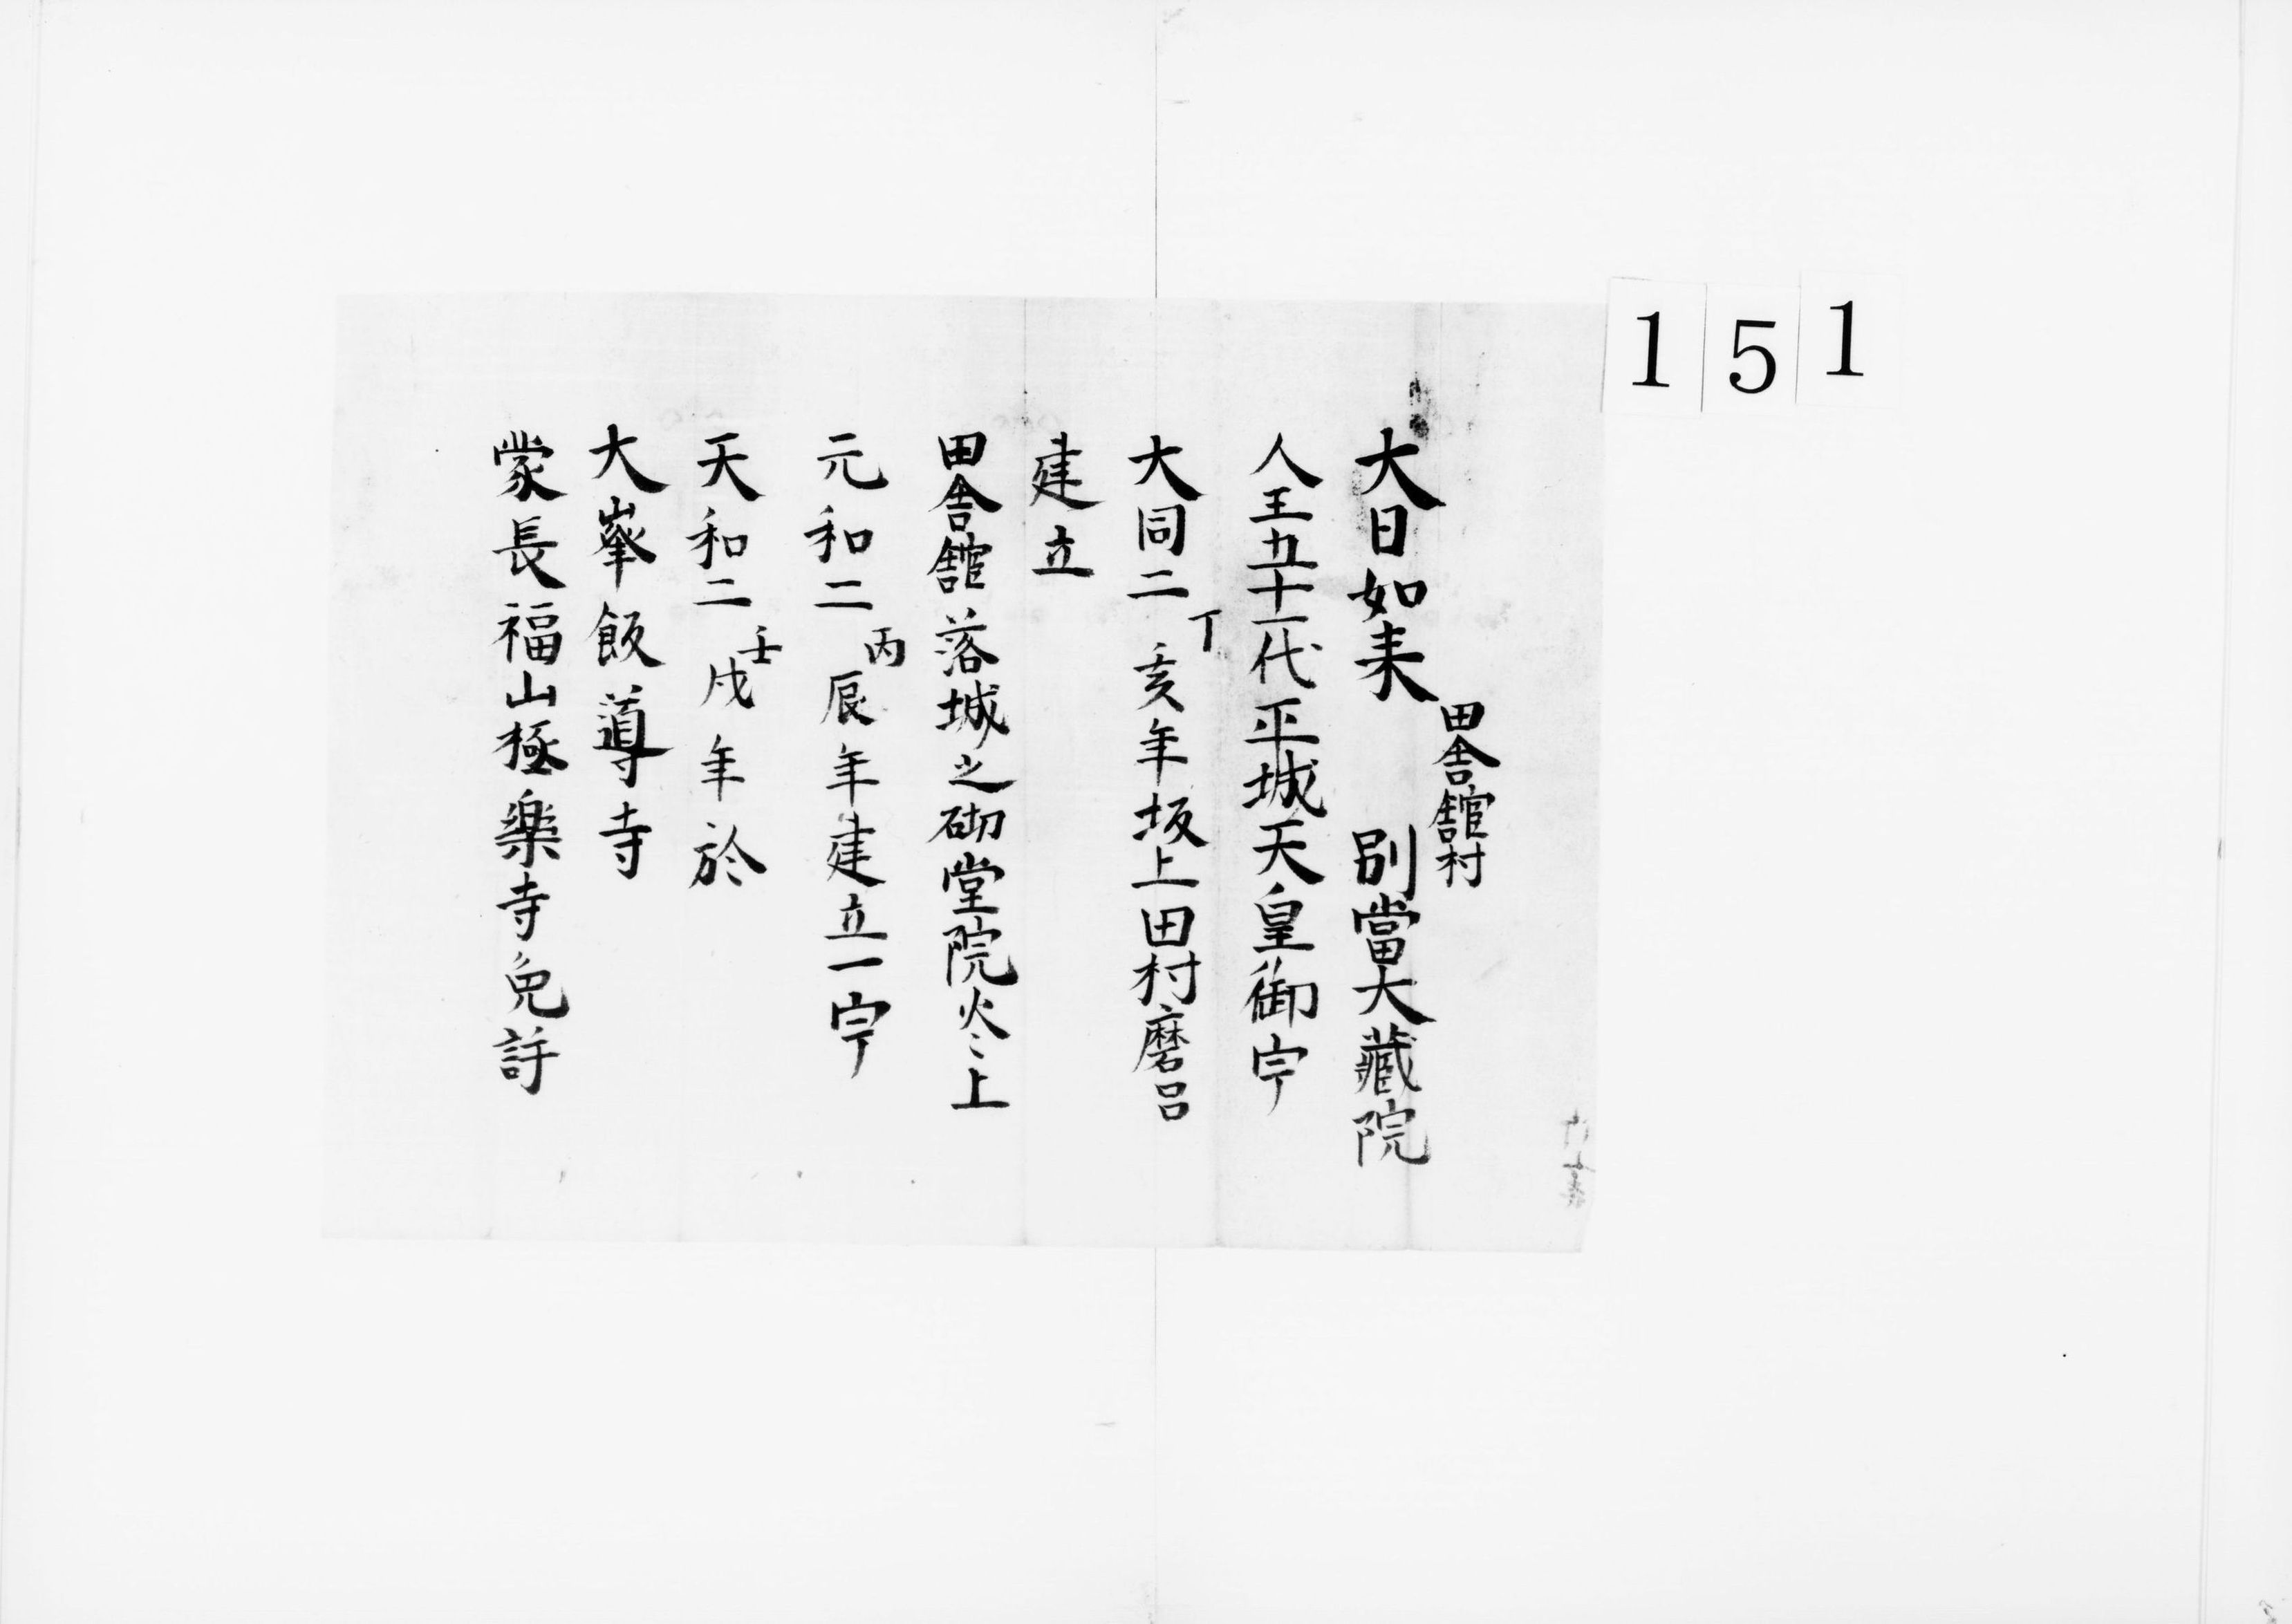 151
田舎舘村
大日如来 別當大藏院
人王五十一代平城天皇御宇
大同二丁亥年坂上田村磨呂
建立
田舎舘落城之砌堂院炎上
元和二丙辰年建立一宇
天和二壬戌年於
大峯飯導寺
蒙長福山極楽寺免許